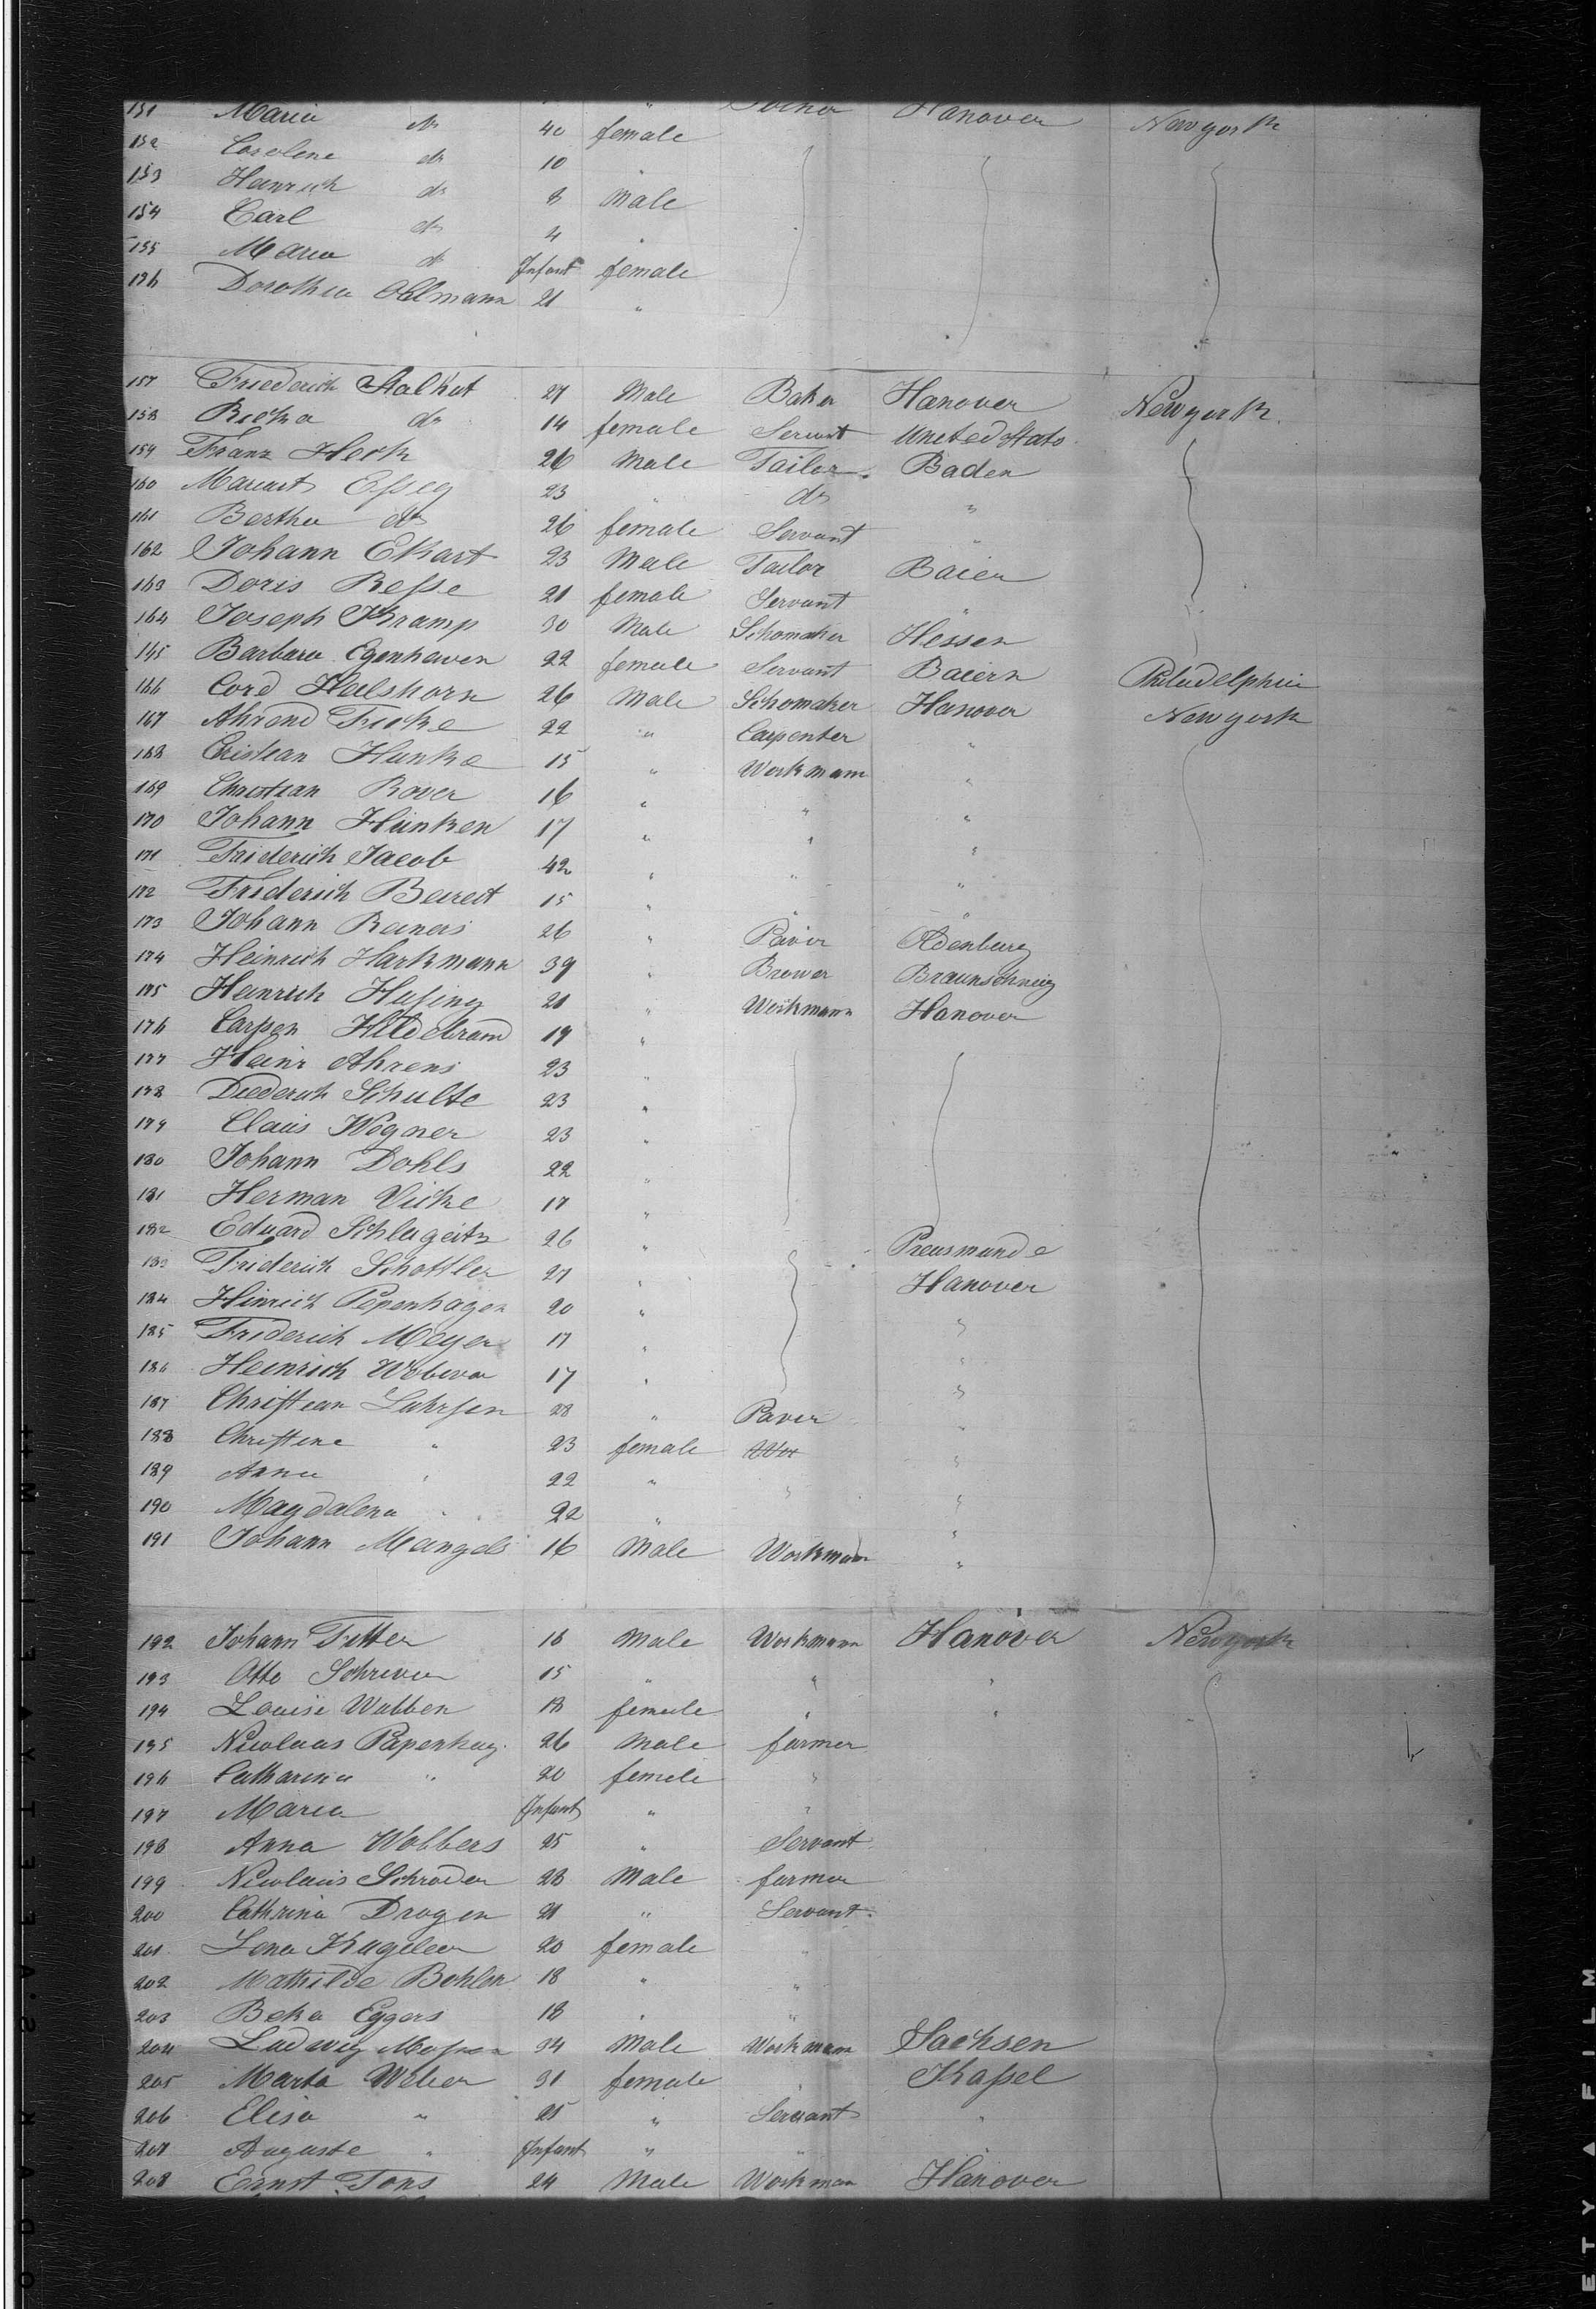 151 Maria do 40 female Hanover Newyork
152 Carolene do 10 "
153 Heinrich do 8 Male
154 Carl do 4 "
155 Maria do Infant female
156 Dorothea Ahlmann 21 "
157 Friederich Stalkut 27 Male Baker Hanover Newyork
158 Rieka do 14 female Servant United Stats
159 Franz Heck 26 Male Tailor Baden
160 Esseg 23 " do "
161 Bertha do 26 female Servant "
162 Johann Ekart 23 Male Tailor Baier
163 Doris Resse 21 female Servant "
164 Joseph Kramp 30 Male Schomaker Hessen
165 Barbara Egenhaven 22 female Servant Baiern Philadelphia
166 Cord Helshorn 26 Male Schomaker Hanover Newyork
167 Ahrend Fricke 22 " Carpenter "
168 Cristian Hunke 15 " Workmann "
169 Christian Rover 16 " " "
170 Johann Hünken 17 " " "
171 Friderich Jacob 42 " " "
172 Friderich 15 " " "
173 Johann Reiners 26 " Paver Oldenburg
174 Heinrich Harkmann 39 " Brower Braunschweig
175 Heinrich Husing 21 " Workmann Hanover
176 Carsten Hildebrand 19 "
177 Heinr Ahrens 23 "
178 Diederich Schulte 23 "
179 Claus Wegner 23 "
180 Johann Dohls 22 "
181 Herman Vicke 17 "
182 Eduard Schlageitz 26 " Preusmunde
183 Friderich Schottler 27 " Hanover
184 Hinrich Pepenhagen 20 " "
185 Friderich Meyer 17 " "
186 Heinrich 17 " "
187 Christian Luhrsen 28 " Paver "
188 Christine " 23 female "
189 Anna " 22 " " "
190 Magdalena " 22 " "
191 Johann Mangels 16 Male Workmann "
192 Johann Tetter 16 Male Workmann Hanover Newyork
193 Otto Schriever 15 " " "
194 Louise Wubben 18 female " "
195 Nicolaus Papenhag. 26 Male farmer
196 Catharina " 20 female "
197 Maria Infant " "
198 Anna Wobbers 25 " Servant
199 Nicolaus Schröder 28 Male farmer
200 Cathrina Drogen 21 " Servant
201 Lena Kugeleer 20 female "
202 Mathilde Bohlen 18 " "
203 Beka Eggers 18 " "
204 Ludwig 34 Male Workmann Sachsen
205 Marta Weber 31 female " Kassel
206 Elisa " 25 " Servant "
207 Auguste " Infant " "
208 Ernst Tons 24 Male Workman Hanover